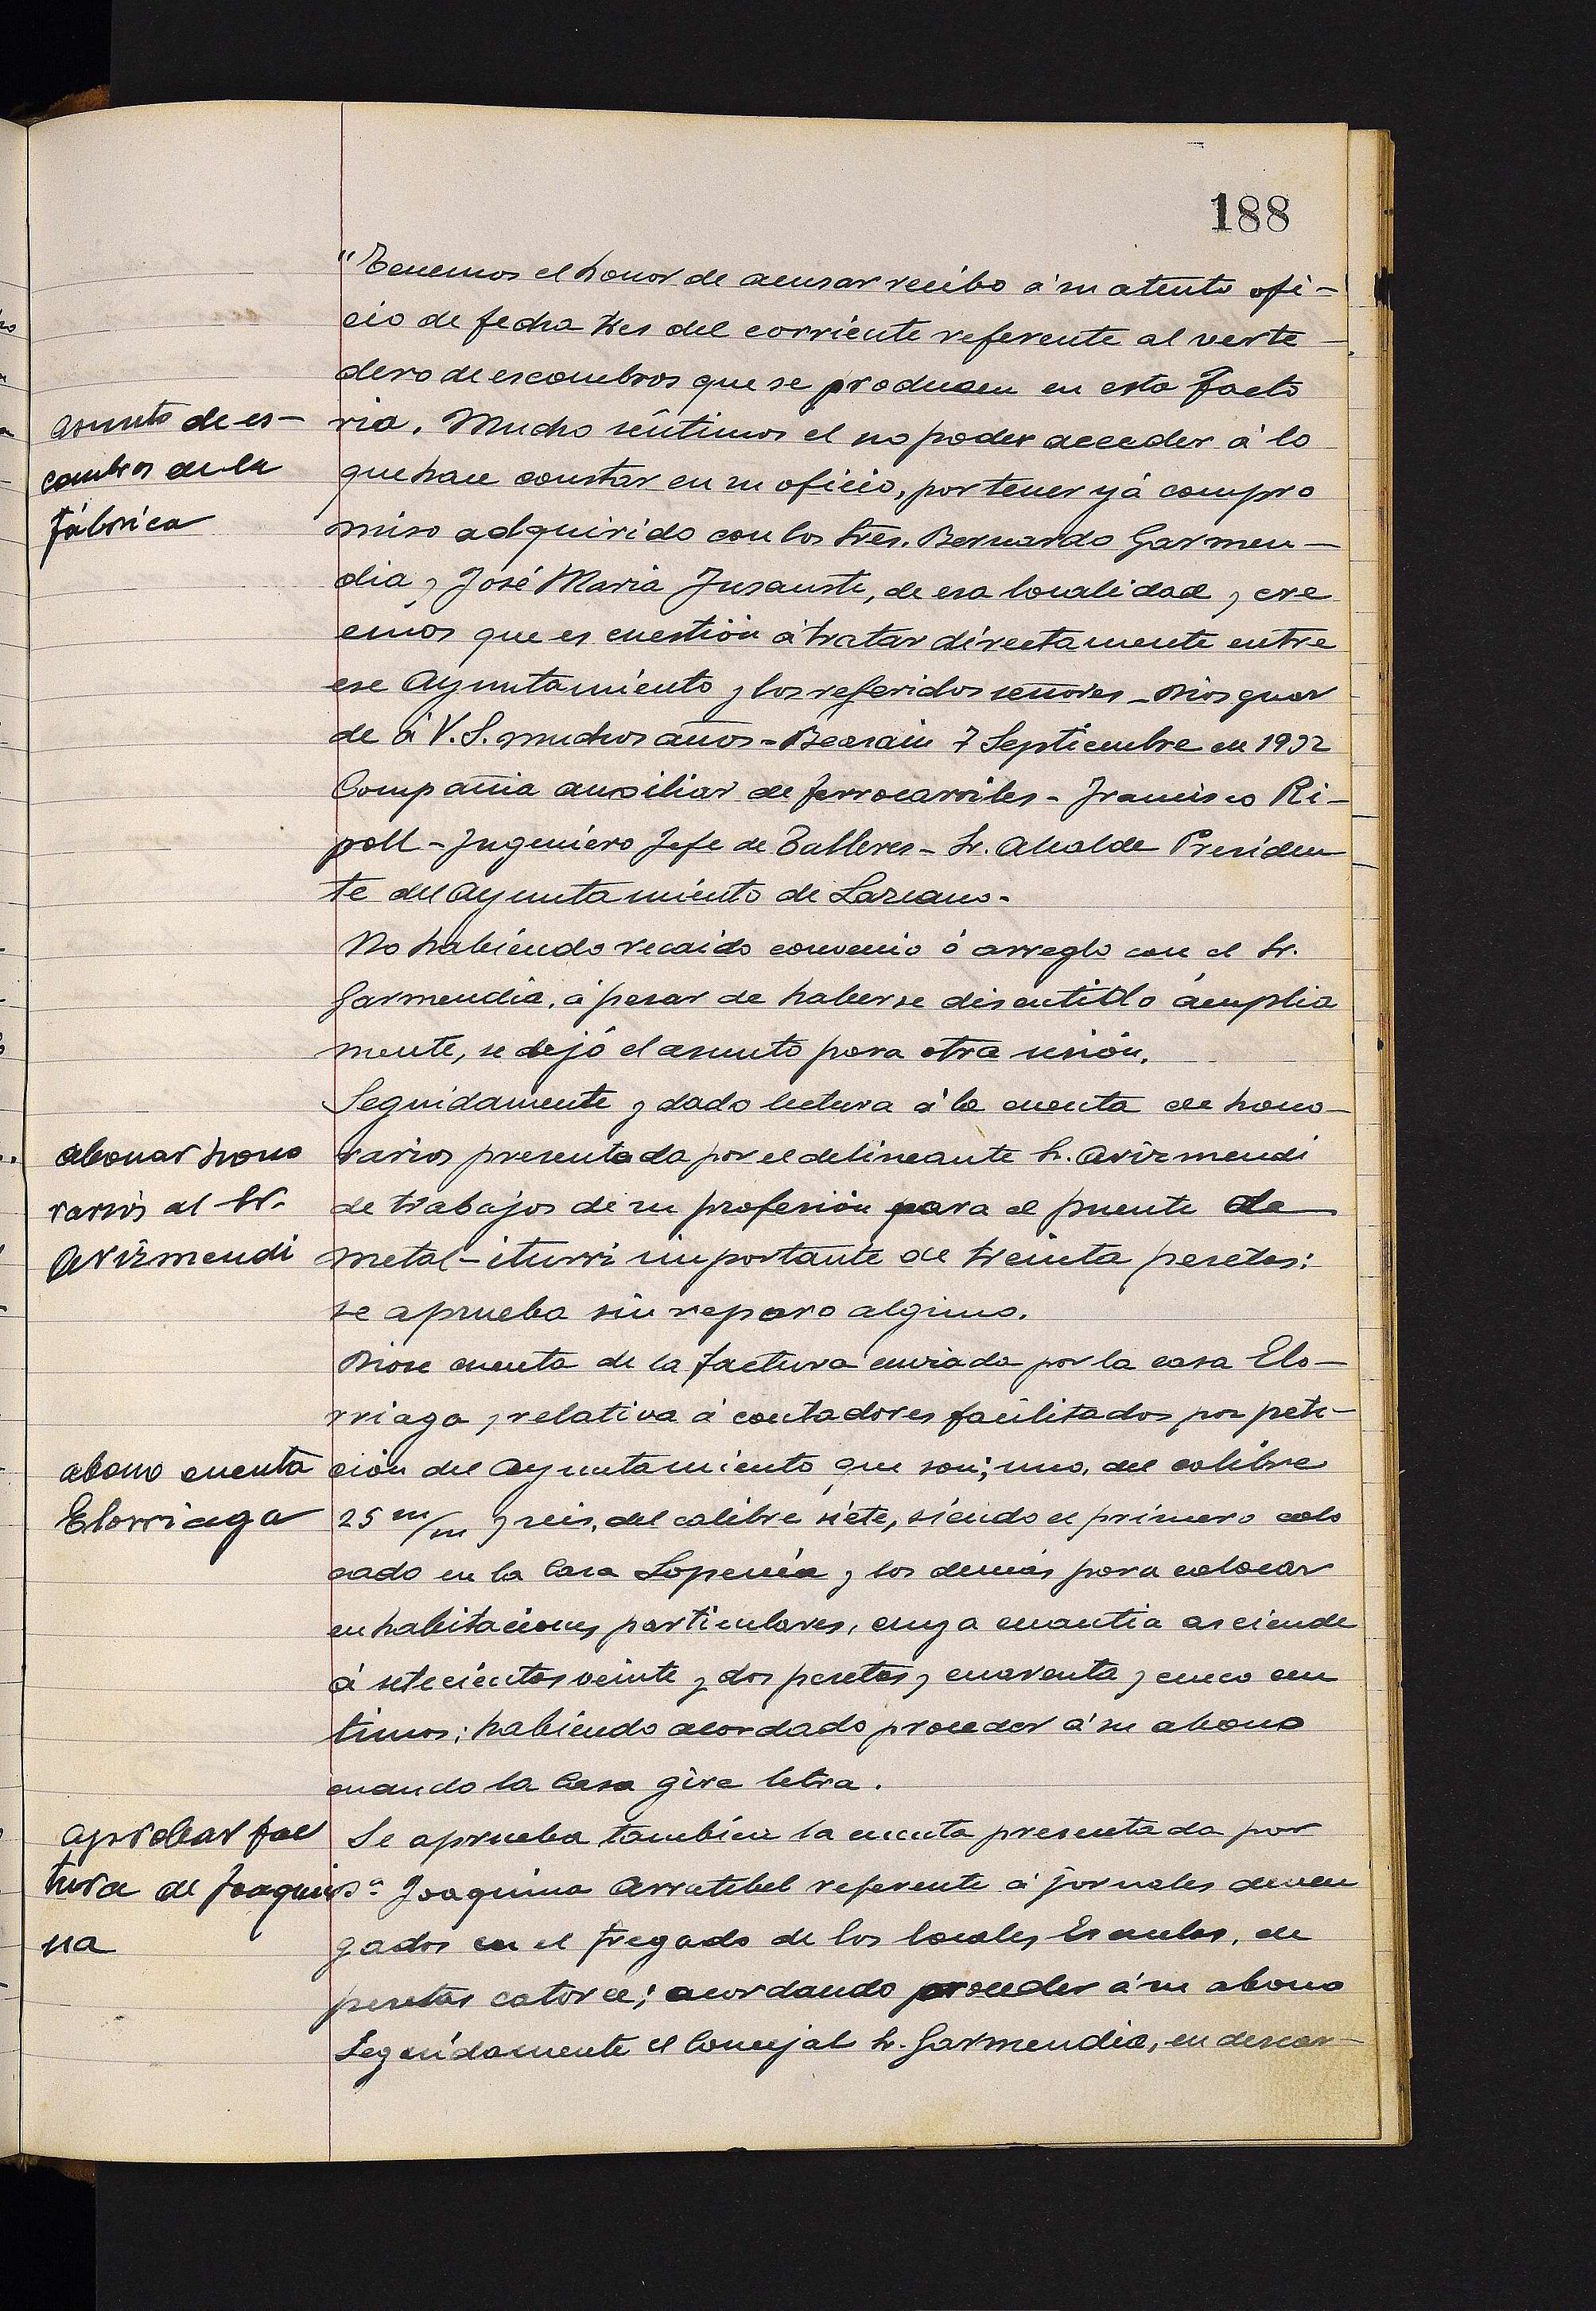 188
"Tenemos el honor de acusar recibo á su atento ofi-
cio de fecha tres del corriente referente al verte-
dero de escombros que se producen en esta facto
asunto de es-
combros de la
fábrica
ria. Mucho sentimos el no poder acceder á lo
que hace constar en su oficio, por tener yá compro
miso adquirido con los Sres. Bernardo Garmen-
dia y José Maria Insausti, de esa localidad y cre
emos que es cuestión á tratar directamente entre
ese Ayuntamiento y los referidos señores - Dios guar
de á V.S. muchos años - Beasain 7 Septiembre de 1932
Compañia auxiliar de ferrocarriles - Francisco Ri-
poll - Ingeniero Jefe de Talleres - Sr. Alcalde Presiden
te del Ayuntamiento de Lazcano -
No habiendo recaido convenio ó arreglo con el Sr.
Garmendia, á pesar de haberse discutido ámplia
mente, se dejó el asunto para otra sesión.
Seguidamente y dado lectura á la cuenta de hono-
abonar hono
rarios al Sr.
Arizmendi
rarios presentada por el delineante Sr. Arizmendi
de trabajos de su profesión para el puente de
metal-iturri importante de treinta pesetas:
se aprueba sin reparo alguno.
Diose cuenta de la factura enviada por la casa Elo-
rriaga y relativa á contadores facilitados por peti-
abono cuenta
Elorriaga
ción del Ayuntamiento que son; uno, del calibre
25 m/m y seis, del calibre siete, siendo el primero colo
cado en la Casa Lopenea y los demás para colocar
en habitaciones particulares, cuya cuantia asciende
á setecientos veinte y dos pesetas y cuarenta y cinco cen
timos; habiendo acordado proceder á su abono
cuando la Casa gire letra.
aprobar fac
tura de Joaqui
na
Se aprueba también la cuenta presentada por
Dª Joaquina Arratibel referente á jornales deven
gados en el fregado de los locales Escuelas, de
pesetas catorce; acordando proceder á su abono
Seguidamente el Concejal Sr. Garmendia, en descar-